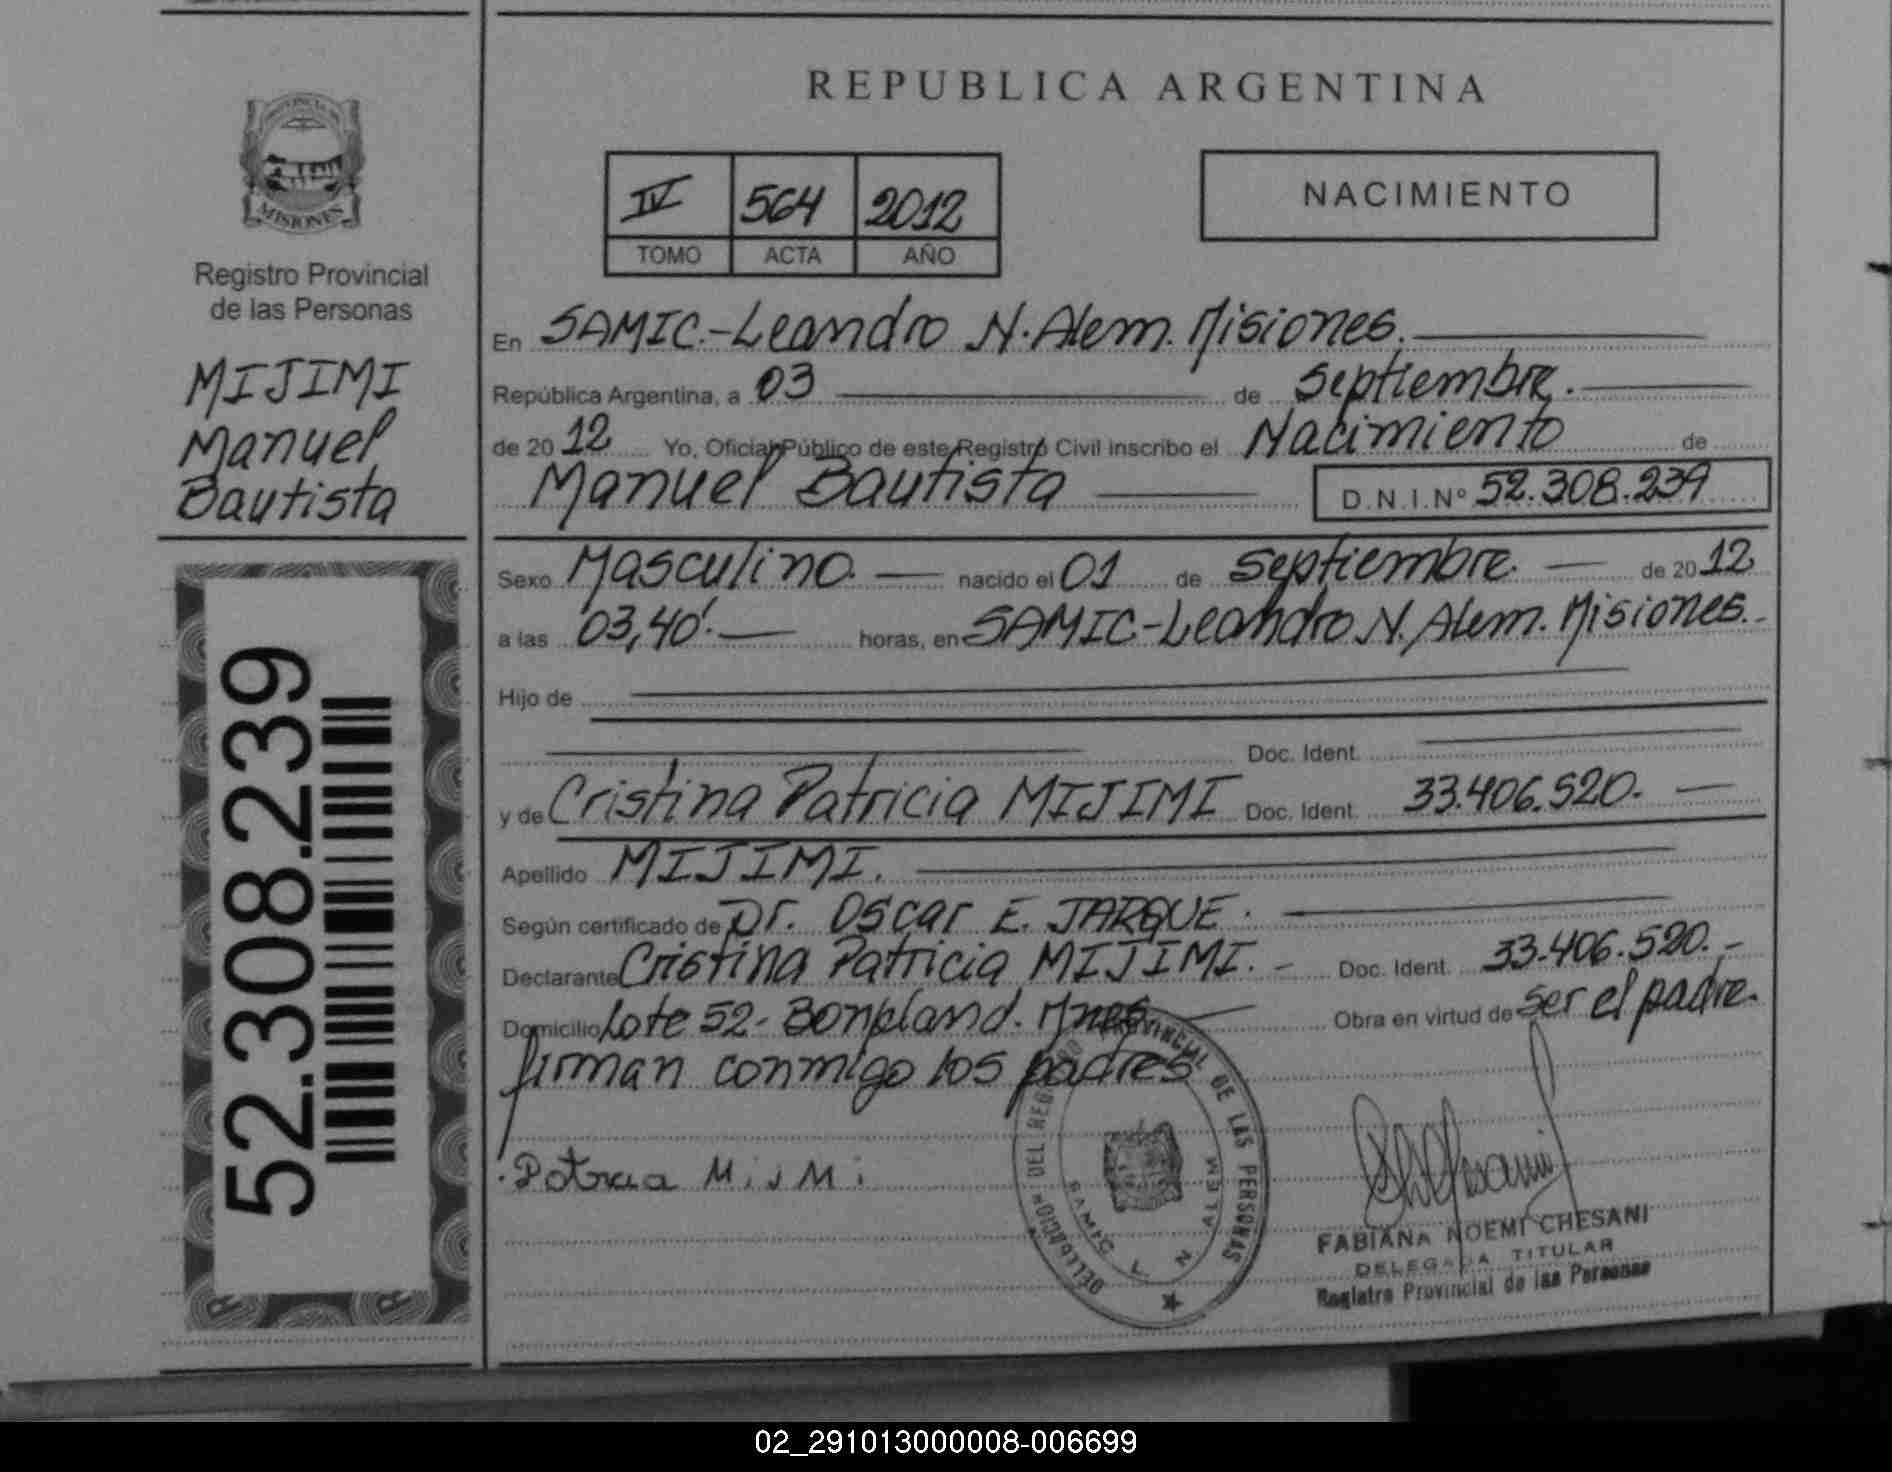 REPUBLICA ARGENTINA
PROVINCIA DE
MISIONES
Registro Provincial
de las Personas
MIJIMI
Manuel
Bautista
52.308.239
IV 564 2012
TOMO ACTA AÑO
NACIMIENTO
En SAMIC.-Leandro N. Alem. Misiones.
República Argentina, a 03 de Septiembre.
de 2012 Yo, Oficial Público de este Registro Civil inscribo el Nacimiento de
Manuel Bautista D.N.I.Nº 52.308.239
Sexo Masculino. nacido el 01 de Septiembre. de 2012
a las 03,40'. horas, en SAMIC-Leandro N. Alem. Misiones.-
Hijo de
Doc. Ident.
y de Cristina Patricia MIJIMI Doc. Ident. 33.406.520.
Apellido MIJIMI.
Según certificado de Dr. Oscar E. JARQUE.
Declarante Cristina Patricia MIJIMI.- Doc. Ident. 33.406.520.-
Domicilio Lote 52- Bonpland. Mnes. Obra en virtud de ser el padre.
firman conmigo los padres
DELEGACION DEL REGISTRO PROVINCIAL DE LAS PERSONAS
SAMIC L N ALEM
FABIANA NOEMI CHESANI
DELEGADA TITULAR
Registro Provincial de las Personas
02_291013000008-006699